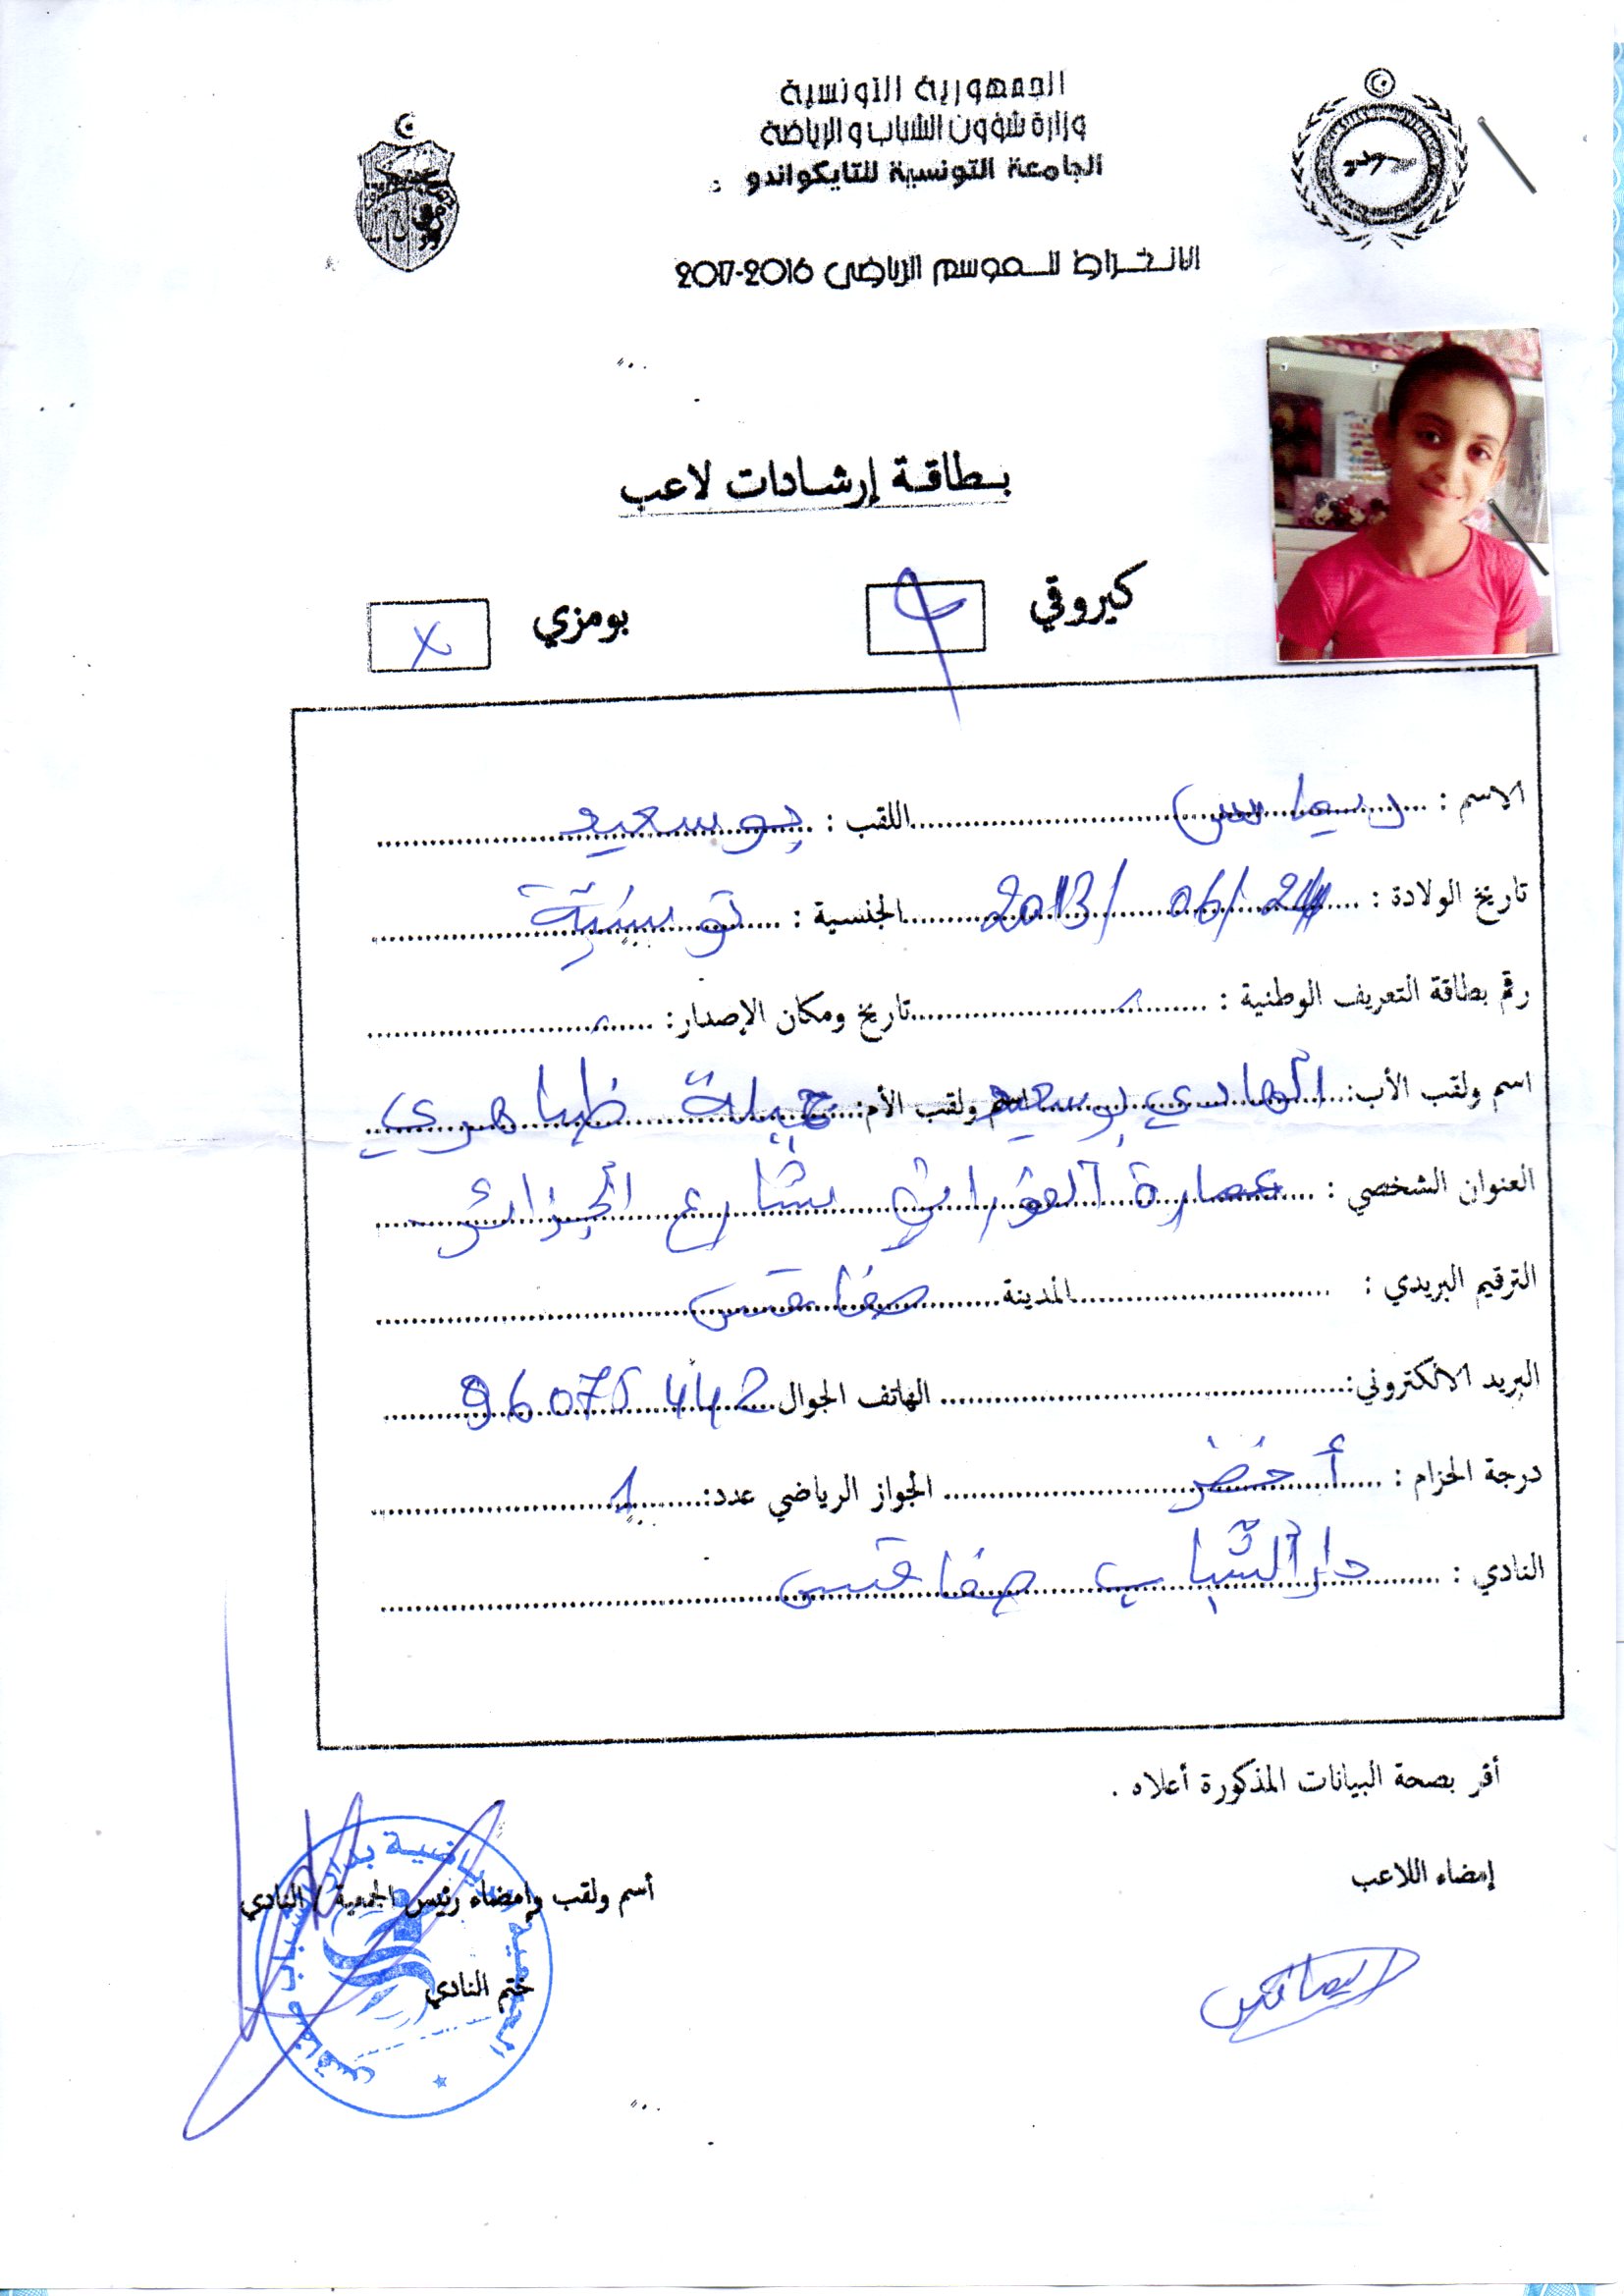 الجمهورية التونسية
وزارة شؤون الشباب والرياضة
الجامعة التونسية للتايكواندو
الانخراط للموسم الرياضي 2016-2017
بطاقة إرشادات لاعب
كيروقي بومزي x
الاسم : ريماس اللقب : بوسعيد
تاريخ الولادة : 24/06/2013 الجنسية : تونسية
رقم بطاقة التعريف الوطنية : تاريخ ومكان الإصدار:
اسم ولقب الأب: الهادي بوسعيد اسم ولقب الأم: جميلة طاهري
العنوان الشخصي : عمارة شارع الجزائر
الترقيم البريدي : المدينة صفاقس
البريد الالكتروني: الهاتف الجوال 96075442
درجة الحزام : أخضر الجواز الرياضي عدد: 1
النادي : دار الشباب صفاقس
أقر بصحة البيانات المذكورة أعلاه .
إمضاء اللاعب أسم ولقب وإمضاء رئيس الجمعية / النادي
ختم النادي